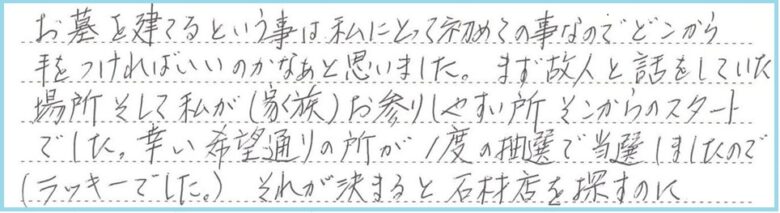 お墓を建てるという事は私にとって初めての事なのでどこから
手をつければいいのかなあと思いました。まず故人と話をしていた
場所そして私が(家族)お参りしやすい所そこからのスタート
でした。幸い希望通りの所が1度の抽選で当選しましたので
(ラッキーでした。) それが決まると石材店を探すのに